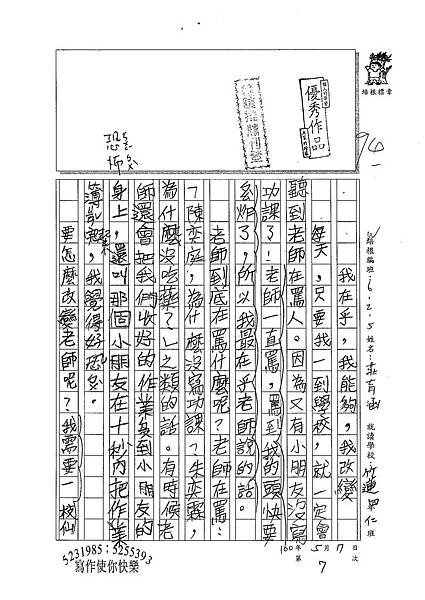 培根標章
優秀作品
94
恐
怖
培根編班:6.2.5 姓名:莊育涵 就讀學校 竹蓮 四仁班
我在乎,我能夠,我改變
每天,只要我一到學校,就一定會
聽到老師在罵人。因為又有小朋友沒寫
功課了!老師一直罵,罵到我的頭快要
氣炸了,所以我最在乎老師說的話。
老師到底在罵什麼呢?老師在罵:
「陳奕庭,為什麼沒寫功課?朱奕霖,
為什麼沒吃藥?」之類的話。有時候老
師還會把我們收好的作業丟到小朋友的
身上,還叫那個小朋友在十秒內把作業
簿,我覺得好恐怖。
要怎麼改變老師呢?我需要一枝仙
100年5月7日
第7次
5231985;5255393
寫作使你快樂